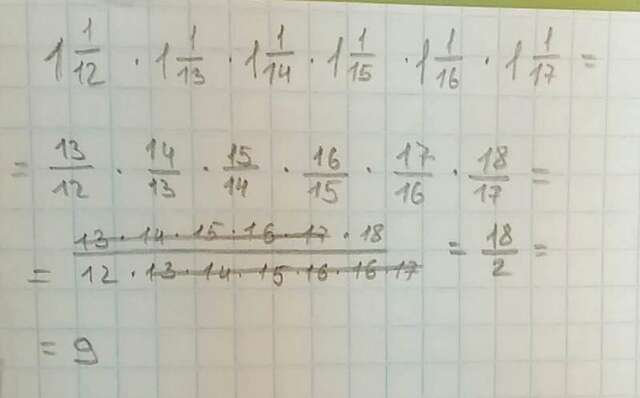 1 1/12 · 1 1/13 · 1 1/14 · 1 1/15 · 1 1/16 · 1 1/17 =
= 13/12 · 14/13 · 15/14 · 16/15 · 17/16 · 18/17 =
= 13 · 14 · 15 · 16 · 17 · 18 / 12 · 13 · 14 · 15 16 · 16 17 = 18/2 =
= 9